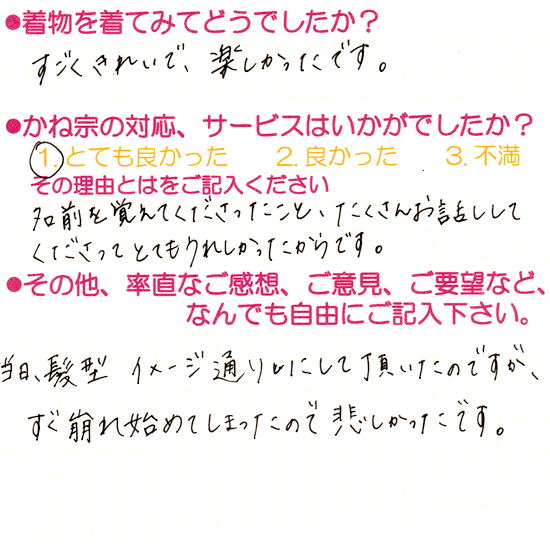 ●着物を着てみてどうでしたか？
すごくきれいで、楽しかったです。
●かね宗の対応、サービスはいかがでしたか？
1.とても良かった 2.良かった 3.不満
その理由とはをご記入ください
名前を覚えてくださったこと、たくさんお話しして
くださってとてもうれしかったからです。
●その他、率直なご感想、ご意見、ご要望など、
なんでも自由にご記入下さい。
当日、髪型 イメージ通りにして頂いたのですが、
すぐ崩れ始めてしまったので悲しかったです。